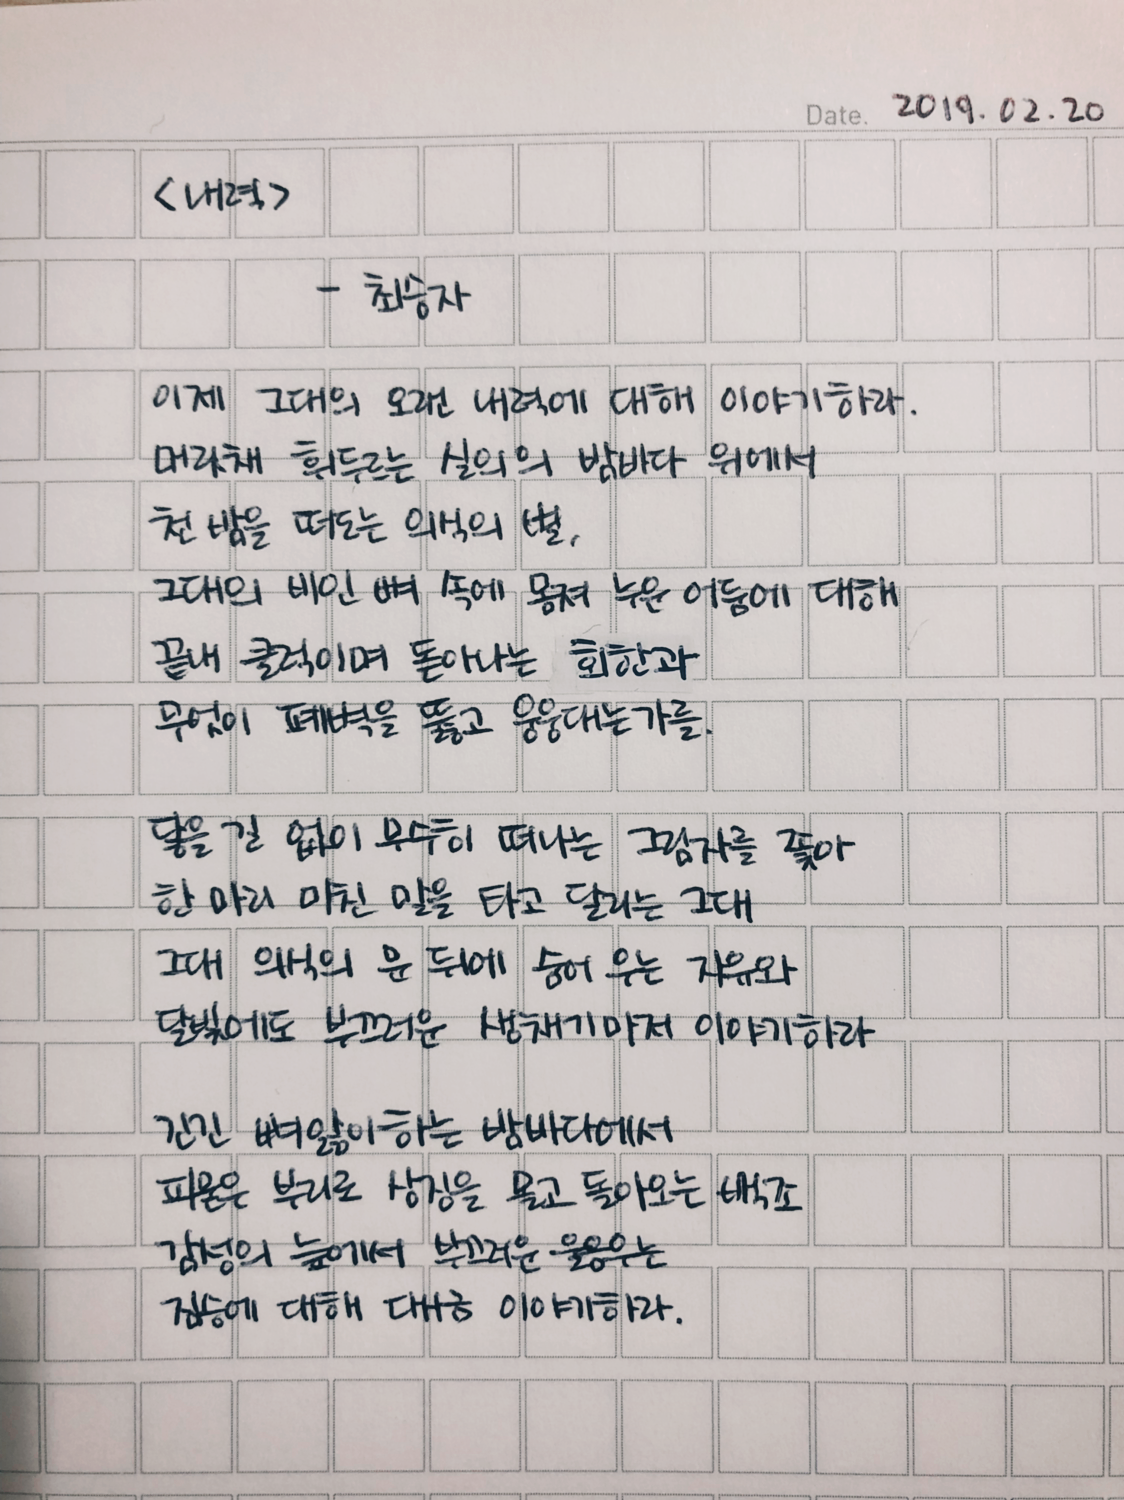 Date. 2019.02.20
<내력>
- 최승자
이제 그대의 오랜 내력에 대해 이야기하라.
머리채 휘두르는 실의의 밤바다 위에서
천 밤을 떠도는 의식의 별,
그대의 비인 뼈 속에 뭉쳐 누운 어둠에 대해
끝내 쿨럭이며 돋아나는 회한과
무엇이 폐벽을 뚫고 웅웅대는가를.
닿을 길 없이 무수히 떠나는 그림자를 쫓아
한 마리 미친 말을 타고 달리는 그대
그대 의식의 문 뒤에 숨어 우는 자유와
달빛에도 부끄러운 생채기마저 이야기하라
긴긴 뼈앓이하는 밤바다에서
피묻은 부리로 상징을 물고 돌아오는 백조
감성의 늪에서 부끄러운 울음우는
짐승에 대해 대사금 이야기하라.